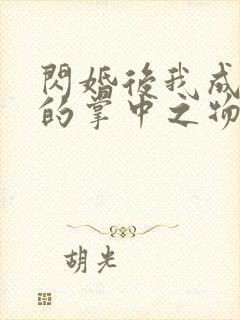 閃婚後我成
的掌中之物
胡光